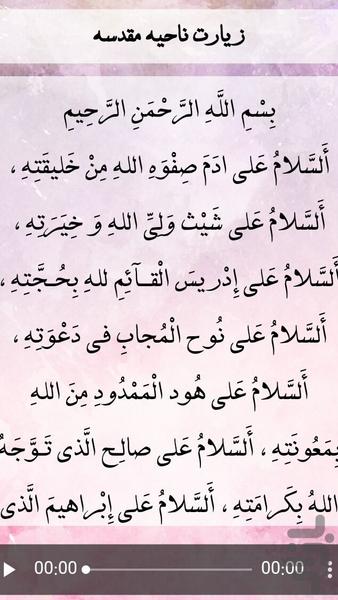 زیارت ناحیه مقدسه
بِسْمِ اللَّهِ الرَّحْمَنِ الرَّحِيمِ
أَلسَّلامُ عَلی ادَمَ صِفْوَهِ اللهِ مِنْ خَليقَتِهِ ،
أَلسَّلامُ عَلی شَيْث وَلِىِّ اللهِ وَ خِيَرَتِهِ ،
أَلسَّلامُ عَلی إِدْريسَ الْقـآئِمِ للهِ بِحُـجَّتِهِ ،
أَلسَّلامُ عَلی نُوح الْمُجابِ فی دَعْوَتِهِ ،
أَلسَّلامُ عَلی هُود الْمَمْدُودِ مِنَ اللهِ
بِمَعُونَتِهِ ، أَلسَّلامُ عَلی صالِـح الَّذی تَـوَّجَهُ
اللهُ بِكَرامَتِهِ ، أَلسَّلامُ عَلی إِبْراهيمَ الَّذی
00:00 00:00